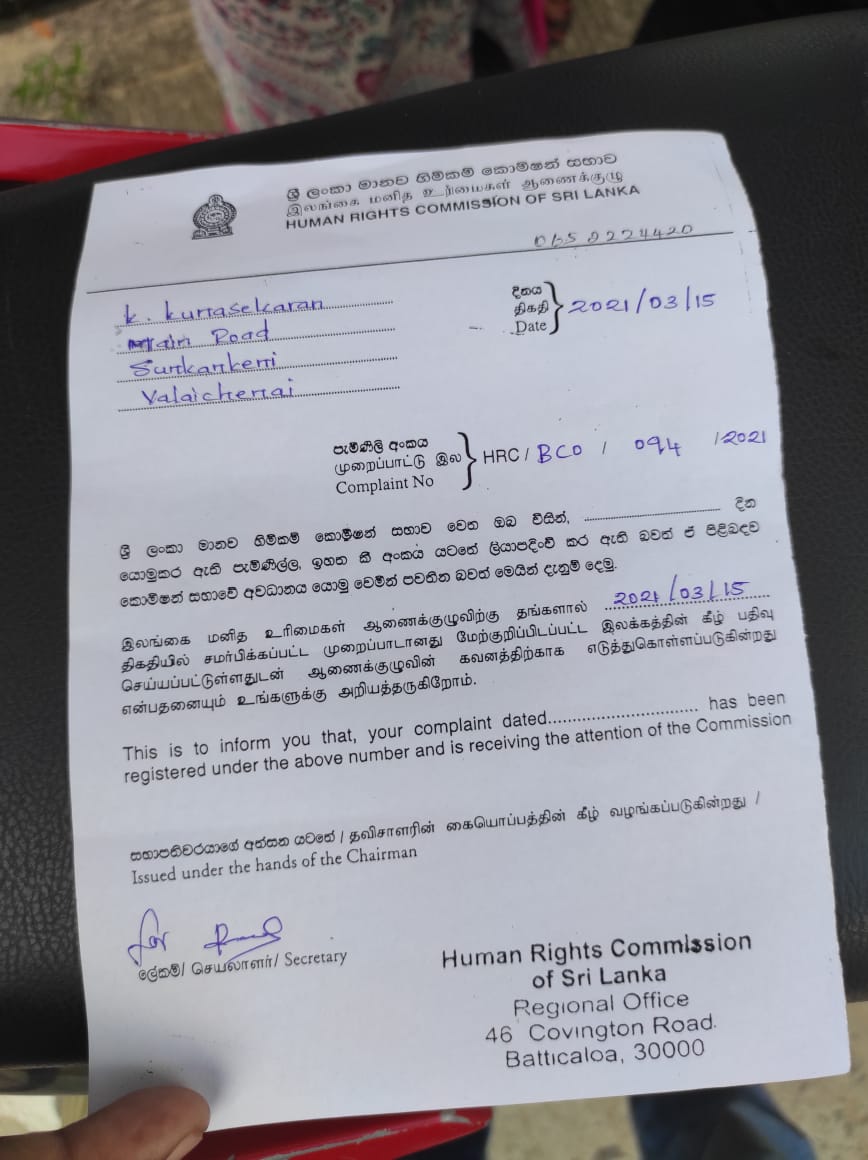 ශ්‍රී ලංකා මානව හිමිකම් කොමිෂන් සභාව
இலங்கை மனித உரிமைகள் ஆணைக்குழு
HUMAN RIGHTS COMMISSION OF SRI LANKA
065 2224420
K. Kunasekaran
Main Road
Sunkankerni
Valaichenai
දිනය
திகதி
Date
2021/03/15
පැමිණිලි අංකය
முறைப்பாட்டு இல
Complaint No
HRC / BCO / 094 /2021
ශ්‍රී ලංකා මානව හිමිකම් කොමිෂන් සභාව වෙත ඔබ විසින්, .............................. දින
යොමුකර ඇති පැමිණිල්ල, ඉහත කී අංකය යටතේ ලියාපදිංචි කර ඇති බවත් ඒ පිළිබඳව
කොමිෂන් සභාවේ අවධානය යොමු වෙමින් පවතින බවත් මෙයින් දැනුම් දෙමු.
இலங்கை மனித உரிமைகள் ஆணைக்குழுவிற்கு தங்களால் 2021/03/15
திகதியில் சமர்பிக்கப்பட்ட முறைப்பாடானது மேற்குறிப்பிடப்பட்ட இலக்கத்தின் கீழ் பதிவு
செய்யப்பட்டுள்ளதுடன் ஆணைக்குழுவின் கவனத்திற்காக எடுத்துகொள்ளப்படுகின்றது
என்பதனையும் உங்களுக்கு அறியத்தருகிறோம்.
This is to inform you that, your complaint dated.............................. has been
registered under the above number and is receiving the attention of the Commission
සභාපතිවරයාගේ අත්සන යටතේ / தவிசாளரின் கையொப்பத்தின் கீழ் வழங்கப்படுகின்றது /
Issued under the hands of the Chairman
for
ලේකම්/ செயலாளர்/ Secretary
Human Rights Commission
of Sri Lanka
Regional Office
46 Covington Road.
Batticaloa, 30000